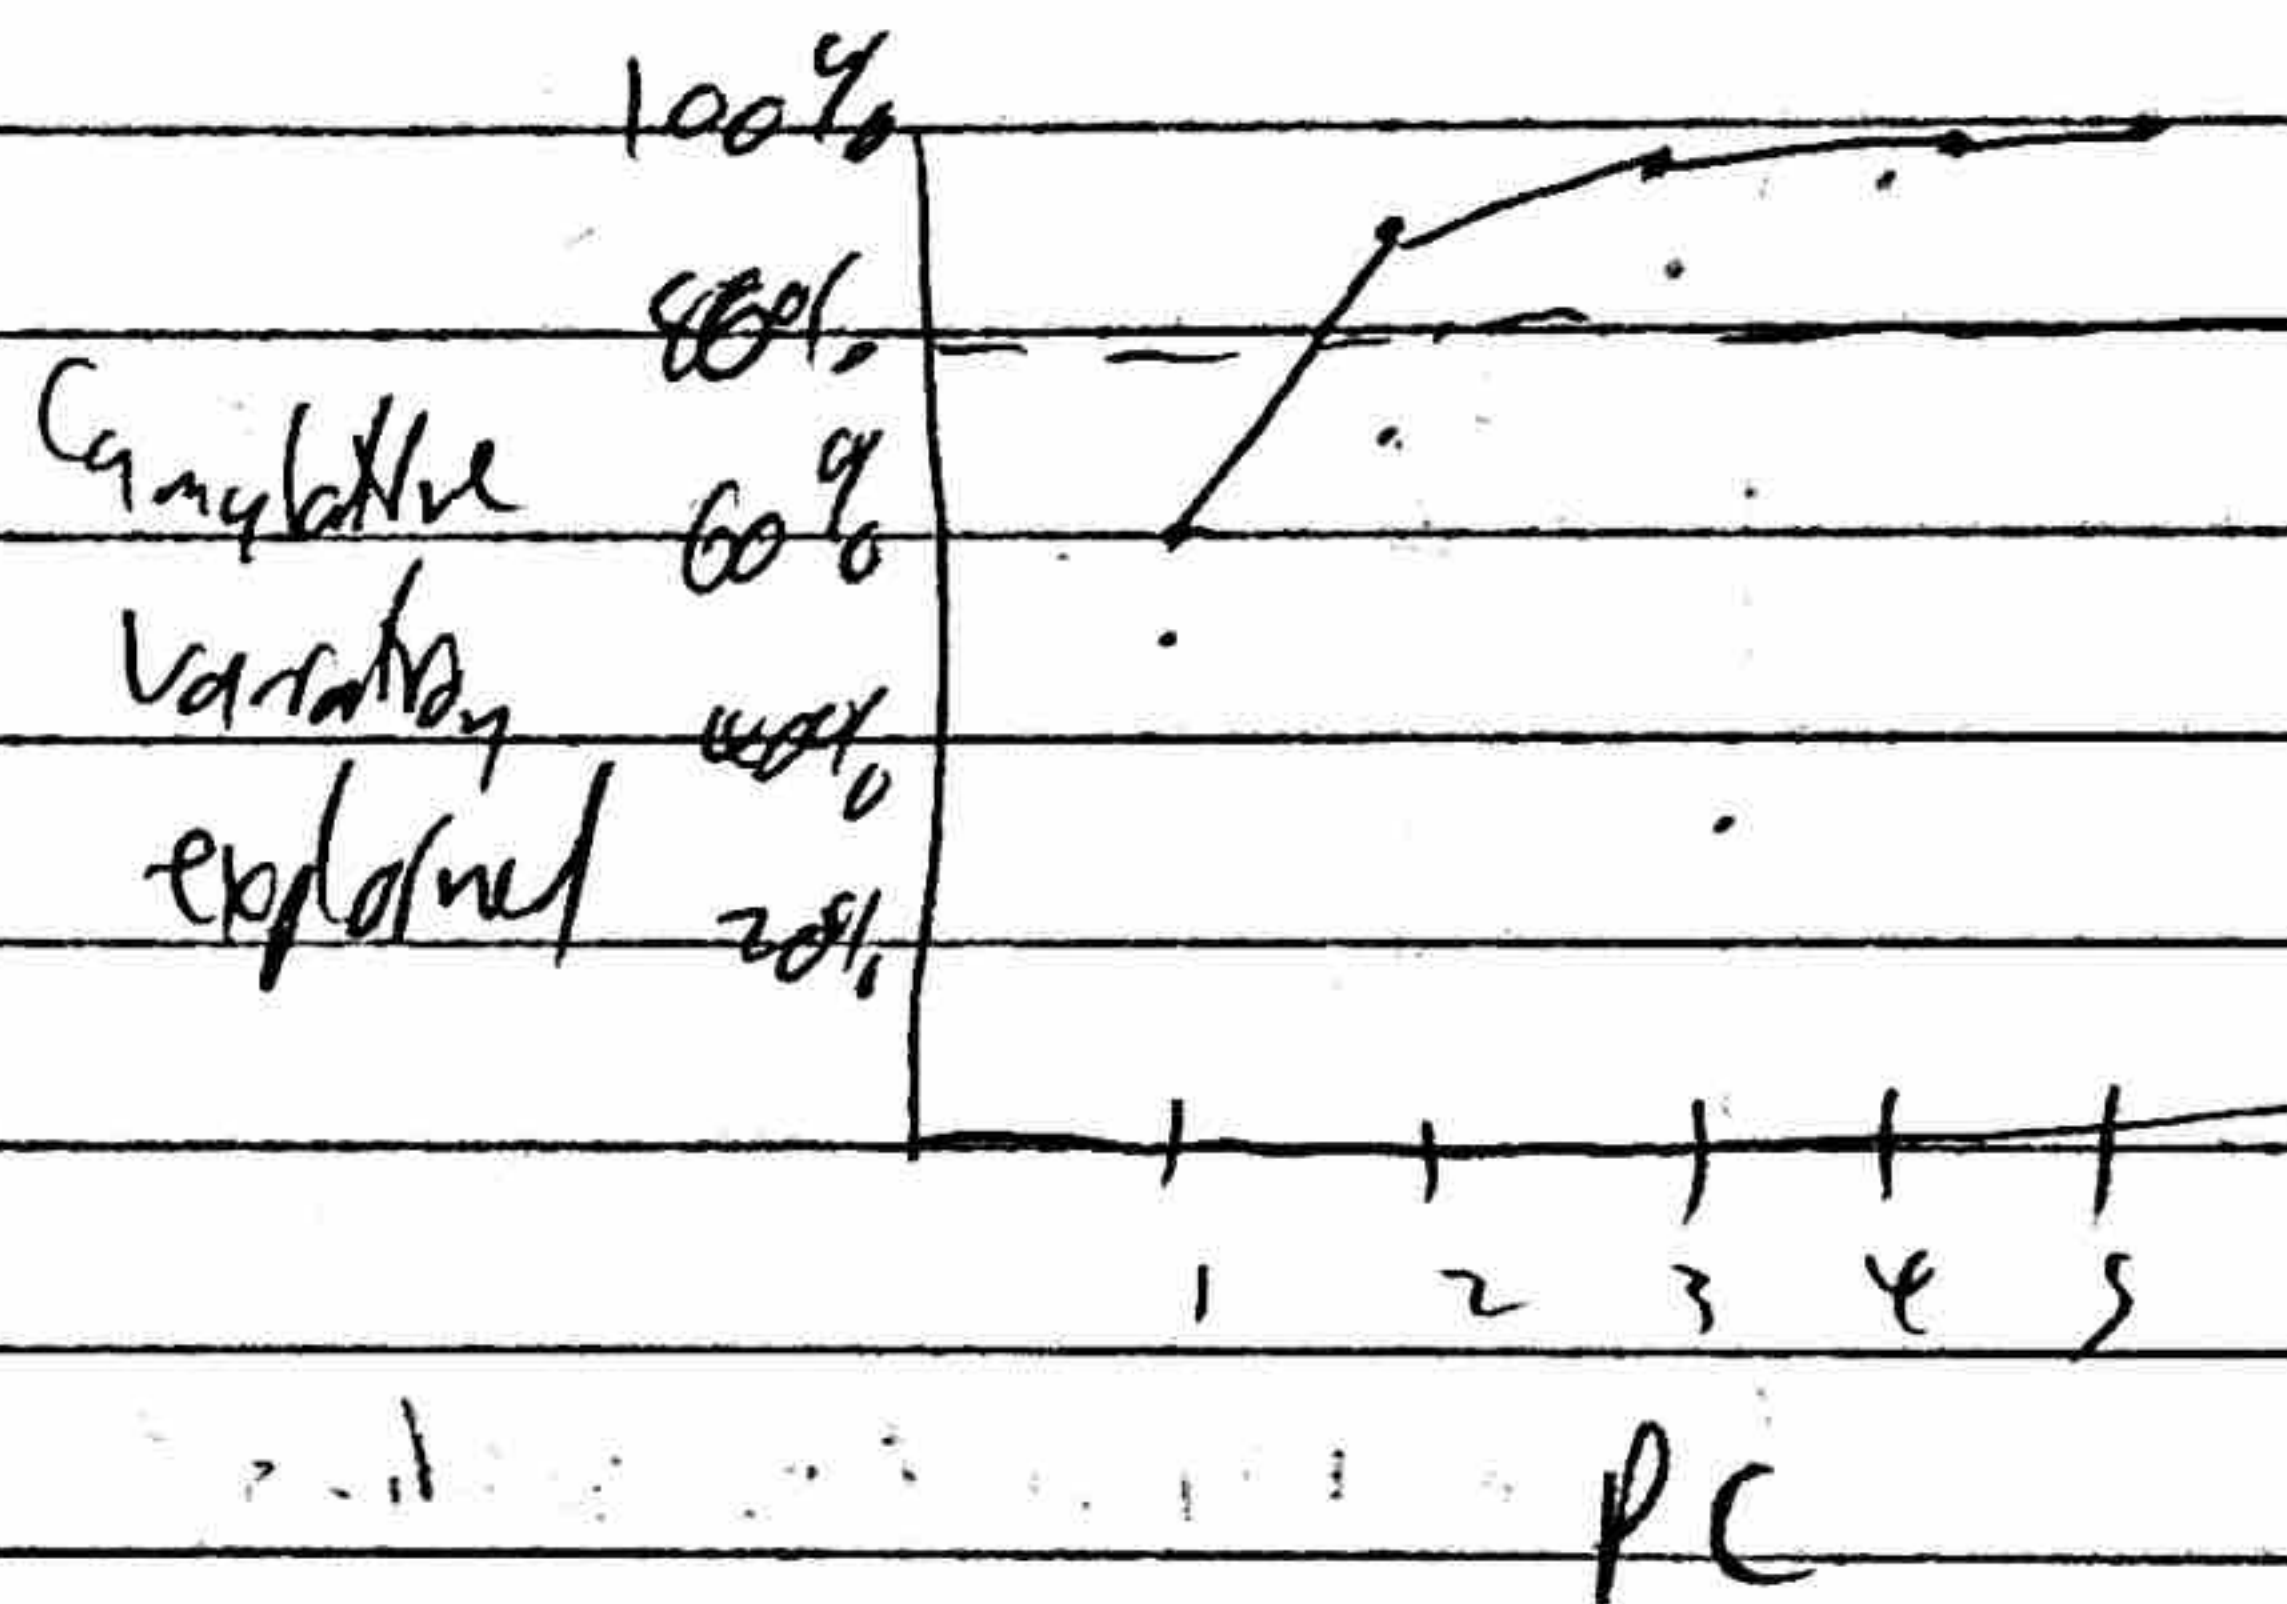 100%
80%
Cumulative
60%
Variation
40%
explained
20%
1 2 3 4 5
PC